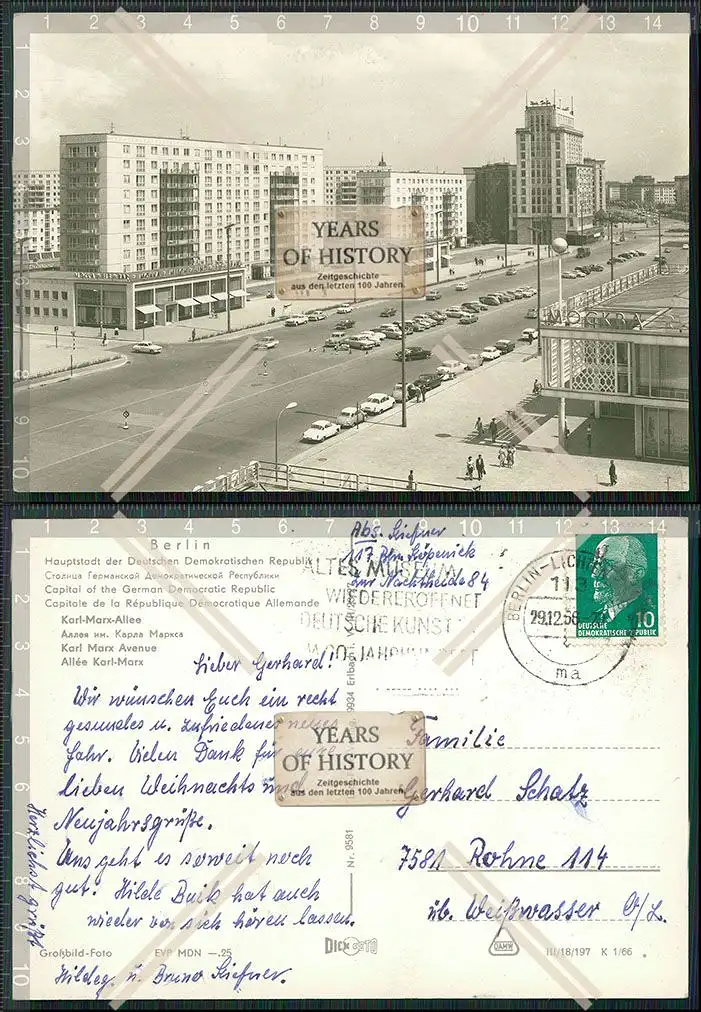 YEARS
OF HISTORY
Zeitgeschichte
aus den letzten 100 Jahren
Berlin
Hauptstadt der Deutschen Demokratischen Republik
Столица Германской Демократической Республики
Capital of the German Democratic Republic
Capitale de la République Démocratique Allemande
Karl-Marx-Allee
Аллея им. Карла Маркса
Karl Marx Avenue
Allée Karl-Marx
Abs. Kießner
117 Bln. Köpenick
Zur Nachtheide 84
ALTES MUSEUM
WIEDERERÖFFNET
DEUTSCHE KUNST
BERLIN-LICHT
113
29.12.66
ma
10
DEUTSCHE
DEMOKRATISCHE REPUBLIK
Lieber Gerhard!
Wir wünschen Euch ein recht
gesundes u. zufriedenes neues
Jahr. Vielen Dank für eure
lieben Weihnachts und
Neujahrsgrüße.
Uns geht es soweit noch
gut. Hilde Buik hat auch
wieder von sich hören lassen.
Herzlichst grüßt
Hildeg. u. Bruno Kießner.
YEARS
OF HISTORY
Zeitgeschichte
aus den letzten 100 Jahren
Familie
Gerhard Schatz
7581 Rohne 114
üb. Weißwasser O/L.
9934 Erlbach
Nr. 9581
Großbild-Foto
EVP MDN —.25
DICK FOTO
DAHW
III/18/197 K 1/66